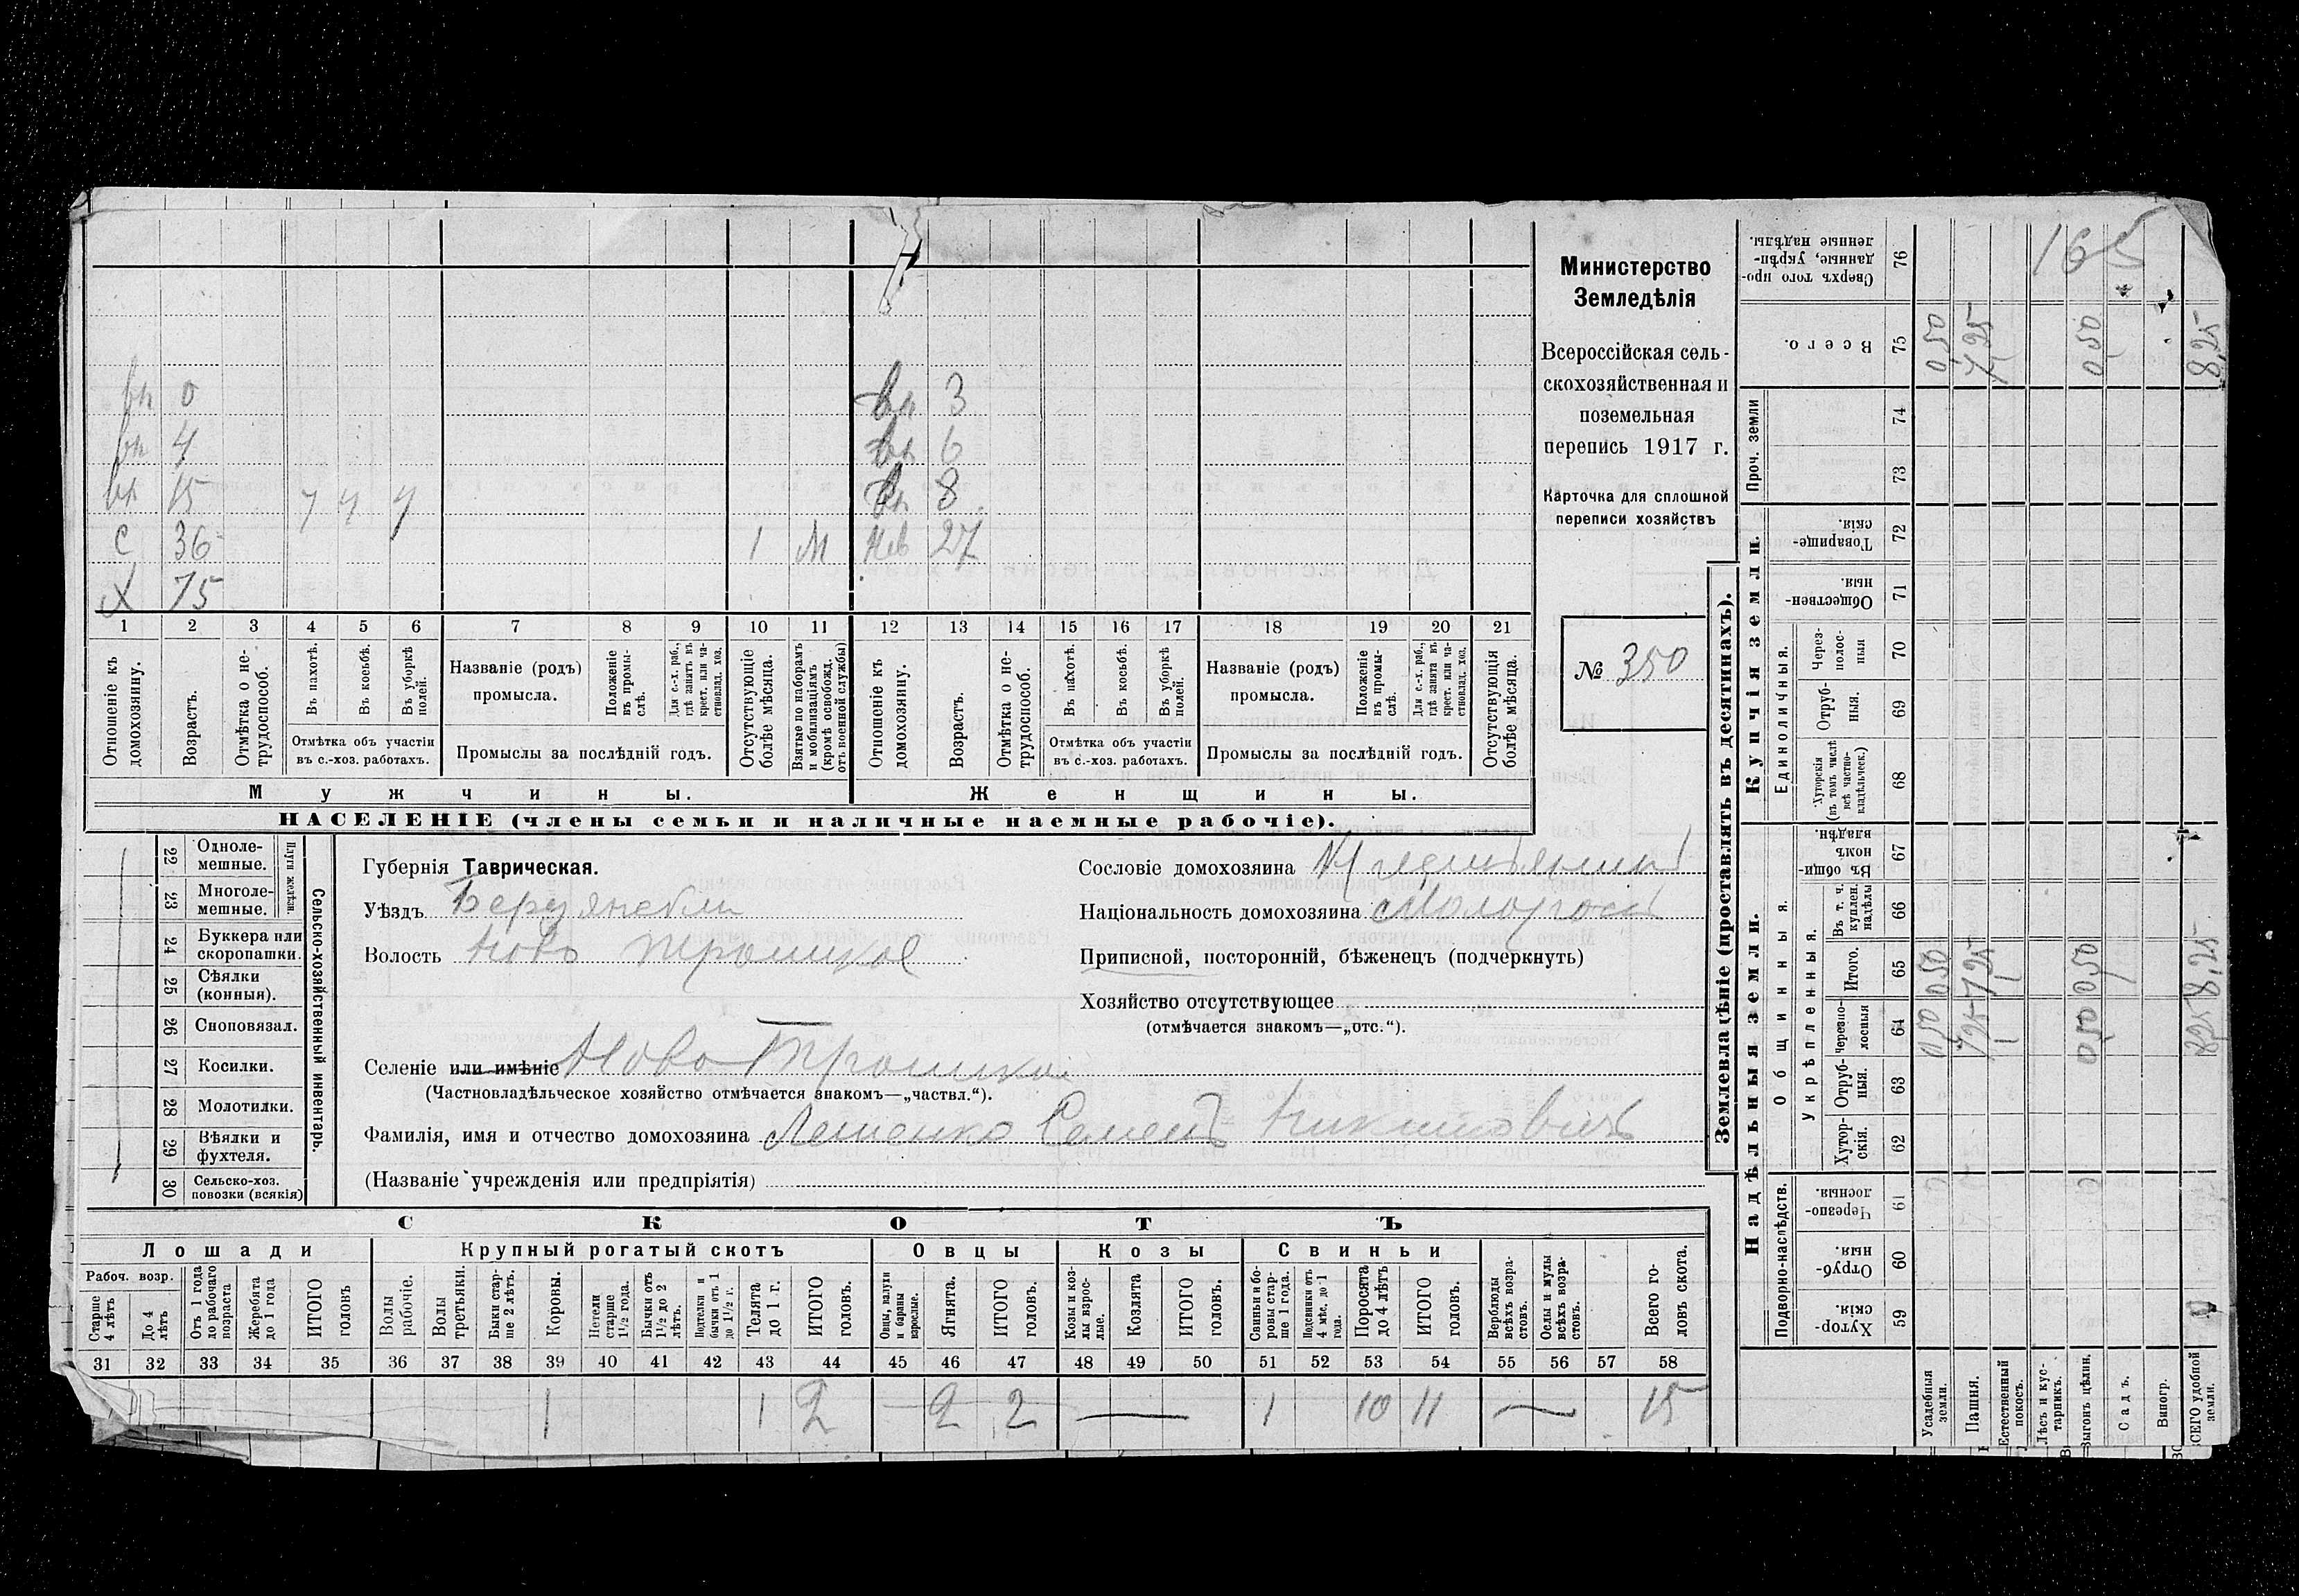 вн 0 вн 3
вн 4 вн 6
вн 15 ч ч ч вн 8
С 36 1 М Нев 27
Х 75
1 2 3 4 5 6 7 8 9 10 11 12 13 14 15 16 17 18 19 20 21
Отношеніе къ домохозяину.
Возрастъ.
Отмѣтка о не-трудоспособ.
Въ пахотѣ.
Въ косьбѣ.
Въ уборкѣ полей.
Отмѣтка объ участіи
въ с.-хоз. работахъ.
Названіе (родъ)
промысла.
Положеніе въ промы-слѣ.
Для с.-х. раб., гдѣ занятъ въ крест. или ча-стновлад. хоз.
Промыслы за послѣдній годъ.
Отсутствующіе болѣе мѣсяца.
Взятые по наборамъ и мобилизаціямъ (кромѣ освобожд. отъ военной службы)
Отношеніе къ домохозяину.
Возрастъ.
Отмѣтка о не-трудоспособ.
Въ пахотѣ.
Въ косьбѣ.
Въ уборкѣ полей.
Отмѣтка объ участіи
въ с.-хоз. работахъ.
Названіе (родъ)
промысла.
Положеніе въ промы-слѣ.
Для с.-х. раб., гдѣ занята въ крест. или ча-стновлад. хоз.
Промыслы за послѣдній годъ.
Отсутствующія болѣе мѣсяца.
Мужчины. Женщины.
НАСЕЛЕНІЕ (члены семьи и наличные наемные рабочіе).
Министерство
Земледѣлія
Всероссійская сель-
скохозяйственная и
поземельная
перепись 1917 г.
Карточка для сплошной
переписи хозяйствъ
№ 350
22 Однолемешные.
23 Многолемешные.
Плуги желѣзн.
24 Буккера или скоропашки.
25 Сѣялки (конныя).
26 Сноповязал.
27 Косилки.
28 Молотилки.
29 Вѣялки и фухтеля.
30 Сельско-хоз. повозки (всякія)
Сельско-хозяйственный инвентарь.
Губернія Таврическая.
Уѣздъ Бердянскій
Волость Ново Троицкое
Селеніе или имѣніе Ново Троицкое
(Частновладѣльческое хозяйство отмѣчается знакомъ—„частвл.“).
Фамилія, имя и отчество домохозяина Лешенко Семенъ Никитовичъ
(Названіе учрежденія или предпріятія)
Сословіе домохозяина Крестьянинъ
Національность домохозяина Малоросъ
Приписной, посторонній, бѣженецъ (подчеркнуть)
Хозяйство отсутствующее
(отмѣчается знакомъ—„отс.“).
СКОТЪ
Лошади Крупный рогатый скотъ Овцы Козы Свиньи
Рабоч. возр.
Старше 4 лѣтъ
До 4 лѣтъ
Отъ 1 года до рабочаго возраста
Жеребята до 1 года
ИТОГО головъ
Волы рабочіе.
Волы третьяки.
Быки стар-ше 2 лѣтъ.
Коровы.
Нетели старше 1½ года.
Бычки отъ 1½ до 2 лѣтъ.
Подтелки и бычки отъ 1 до 1½ г.
Телята до 1 г.
ИТОГО головъ.
Овцы, валухи и бараны взрослые.
Ягнята.
ИТОГО головъ.
Козы и коз-лы взрос-лые.
Козлята
ИТОГО головъ.
Свиньи и бо-ровы стар-ше 1 года.
Подсвинки отъ 4 мѣс. до 1 года.
Поросята до 4 лѣтъ
ИТОГО головъ.
Верблюды всѣхъ возра-стовъ.
Ослы и мулы всѣхъ возра-стовъ.
Всего го-ловъ скота.
31 32 33 34 35 36 37 38 39 40 41 42 43 44 45 46 47 48 49 50 51 52 53 54 55 56 57 58
1 1 2 2 2 — 1 10 11 — 15
Землевладѣніе (проставлять въ десятинахъ).
Купчія земли.
Надѣльныя земли.
Сверхъ того про-данные, укрѣп-ленные надѣлы. 76 165
Всего. 75 050 7,25 050 8,25
Проч. земли 74 73
Товарище-скія. 72
Обществен-ныя. 71
Единоличныя.
Через-полос-ныя 70
Отруб-ныя. 69
Хуторскія (въ томъ числѣ всѣ частно-владѣльческ.) 68
Общинныя.
Въ общин-номъ владѣн. 67
Укрѣпленныя.
Въ т. ч. куплен. надѣлы 66
Итого. 65 050 7,25 050 8,25
Черезпо-лосныя 64 050 7,25 050 8,25
Отруб-ныя. 63
Хутор-скія. 62
Подворно-наслѣдств.
Черезпо-лосныя. 61
Отруб-ныя. 60
Хутор-скія. 59
Усадебныя земли.
Пашня.
Естественный покосъ.
Лѣсъ и кус-тарникъ.
Выгонъ цѣлин.
Садъ.
Виногр.
ВСЕГО удобной земли.